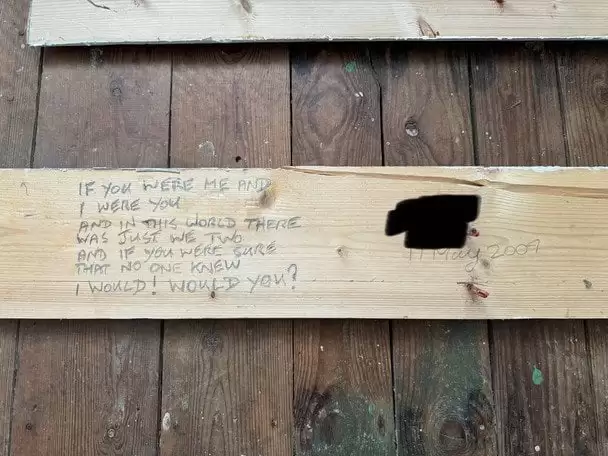 IF YOU WERE ME AND
I WERE YOU
AND IN THIS WORLD THERE
WAS JUST WE TWO
AND IF YOU WERE SURE
THAT NO ONE KNEW
I WOULD! WOULD YOU?
11 May 2009